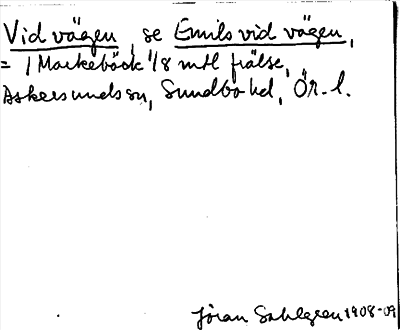 Vid vägen, se Emils vid vägen,
= / Markebäck 1/8 mtl frälse,
Askersunds sn, Sundbo hd, Ör. l.
Jöran Sahlgren 1908-09